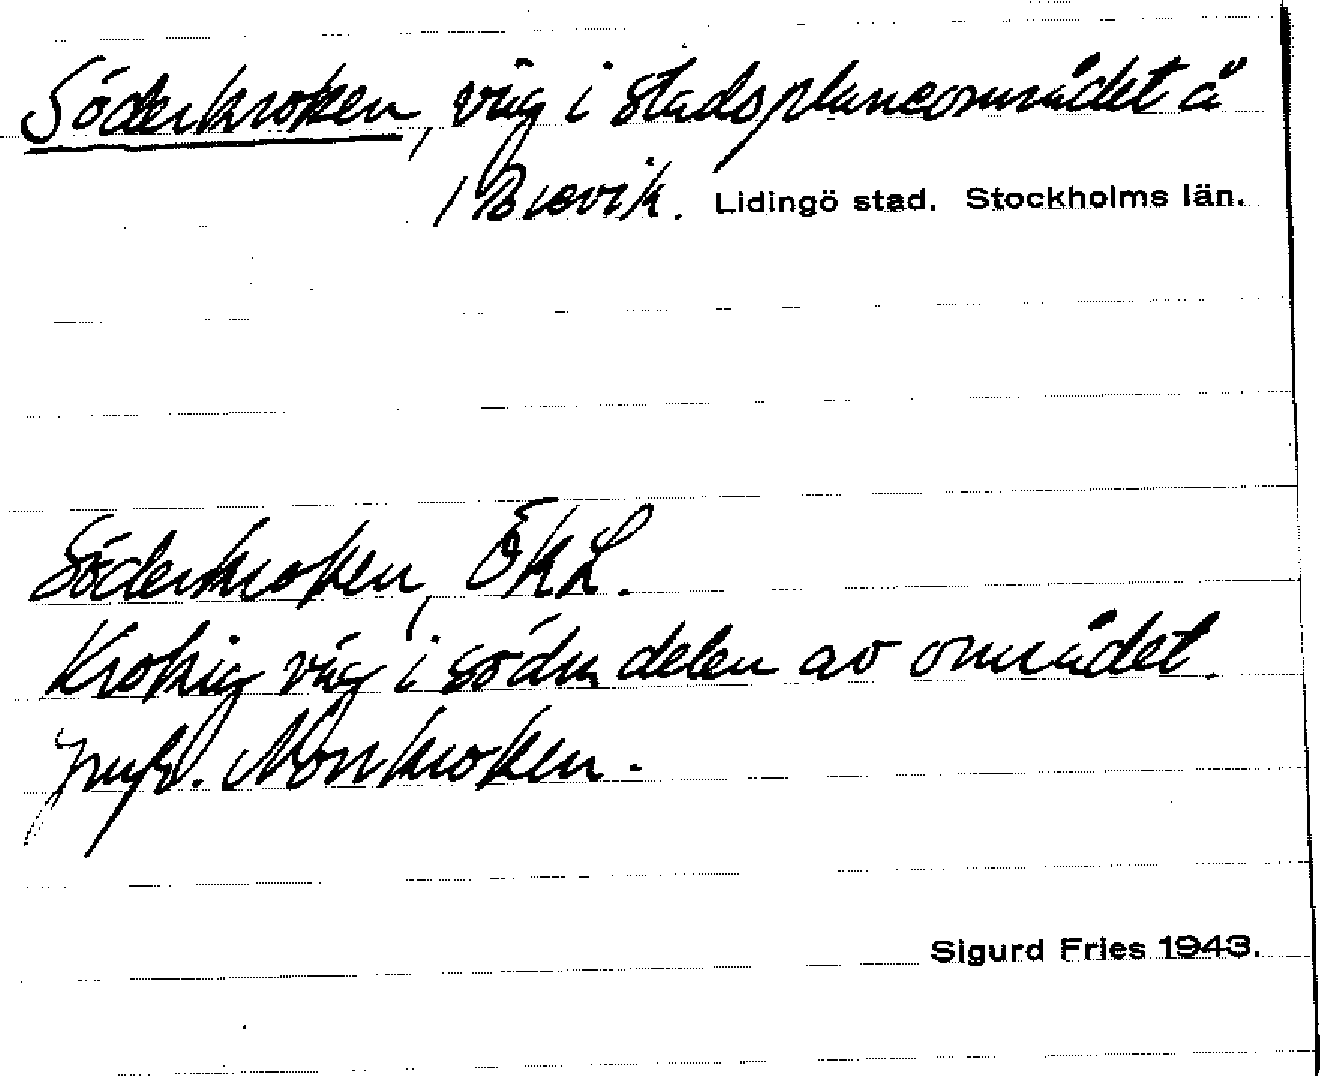 Söderkroken, väg i stadsplaneområdet å
/ Brevik. Lidingö stad. Stockholms län.
Söderkroken, ÖKL.
Krokig väg i södra delen av området.
Jmfr. Norrkroken.
Sigurd Fries 1943.